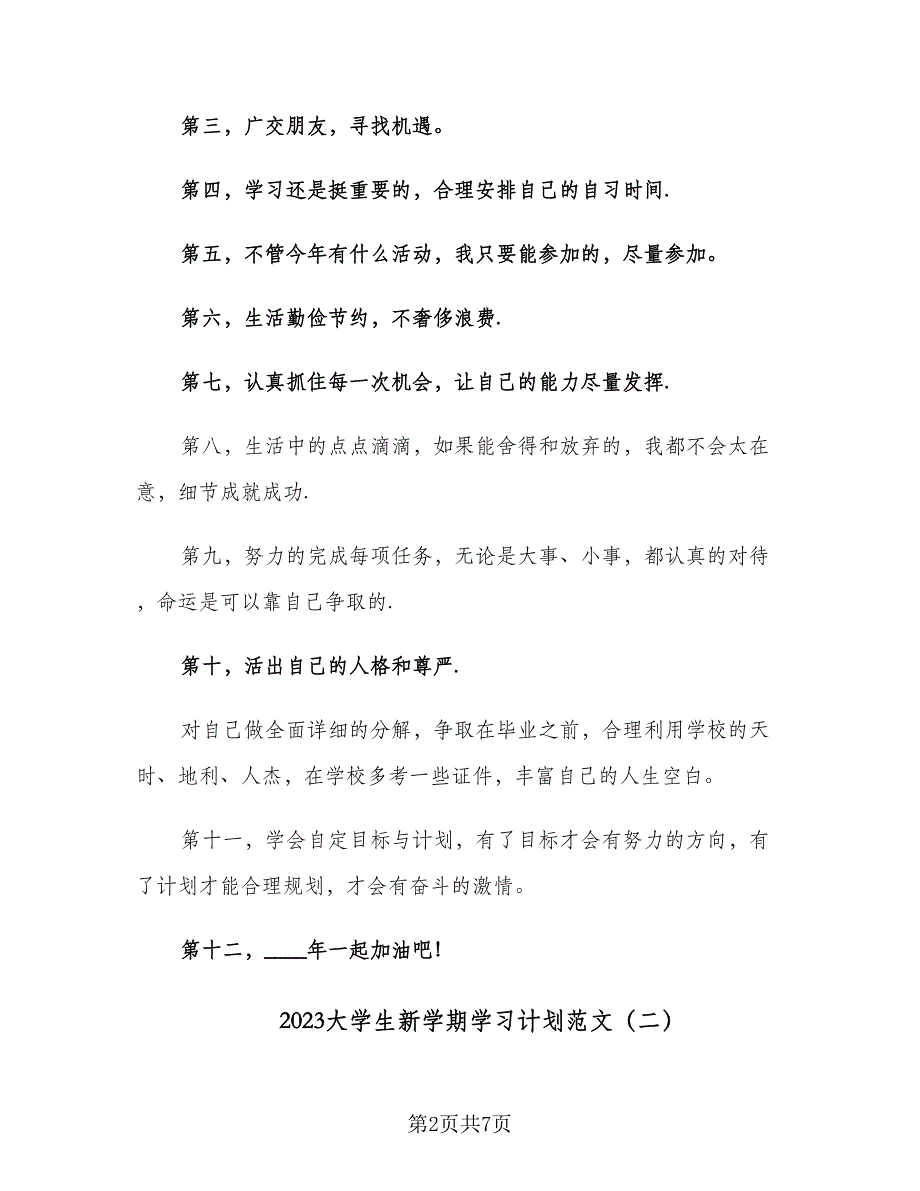 第三，广交朋友，寻找机遇。
第四，学习还是挺重要的，合理安排自己的自习时间.
第五，不管今年有什么活动，我只要能参加的，尽量参加。
第六，生活勤俭节约，不奢侈浪费.
第七，认真抓住每一次机会，让自己的能力尽量发挥.
第八，生活中的点点滴滴，如果能舍得和放弃的，我都不会太在
意，细节成就成功.
第九，努力的完成每项任务，无论是大事、小事，都认真的对待
，命运是可以靠自己争取的.
第十，活出自己的人格和尊严.
对自己做全面详细的分解，争取在毕业之前，合理利用学校的天
时、地利、人杰，在学校多考一些证件，丰富自己的人生空白。
第十一，学会自定目标与计划，有了目标才会有努力的方向，有
了计划才能合理规划，才会有奋斗的激情。
第十二，____年一起加油吧！
2023大学生新学期学习计划范文（二）
第2页共7页